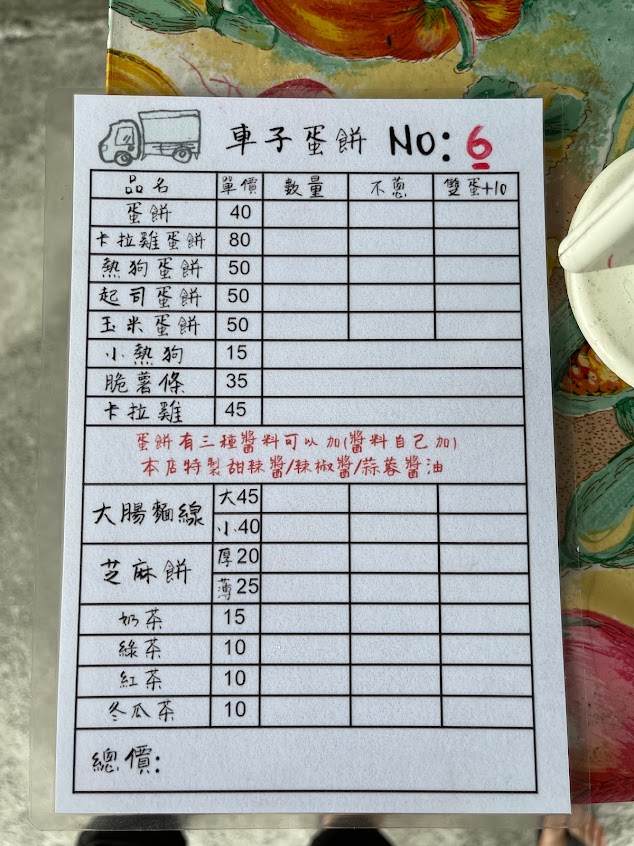 車子蛋餅 NO: 6
品名 單價 數量 不蔥 雙蛋+10
蛋餅 40
卡拉雞蛋餅 80
熱狗蛋餅 50
起司蛋餅 50
玉米蛋餅 50
小熱狗 15
脆薯條 35
卡拉雞 45
蛋餅有三種醬料可以加(醬料自己加)
本店特製甜辣醬/辣椒醬/蒜蓉醬油
大腸麵線 大45
小40
芝麻餅 厚20
薄25
奶茶 15
綠茶 10
紅茶 10
冬瓜茶 10
總價: